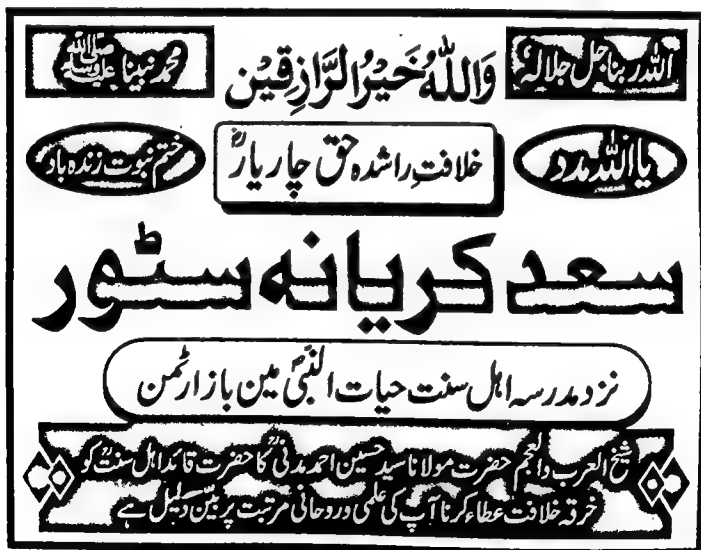 اللہ ربنا جل جلالہ
وَاللّٰهُ خَيْرُ الرَّازِقِيْنَ
محمد نبینا صلی اللہ علیہ وسلم
یا اللہ مدد
خلافتِ راشدہ حق چار یارؓ
ختم نبوت زندہ باد
سعد کریانہ سٹور
نزد مدرسہ اہل سنت حیات النبیؐ مین بازار ٹمن
شیخ العرب والعجم حضرت مولانا سید حسین احمد مدنیؒ کا حضرت قائد اہل سنتؒ کو
خرقہ خلافت عطاء کرنا آپ کی علمی و روحانی مرتبت پر بیّن دلیل ہے